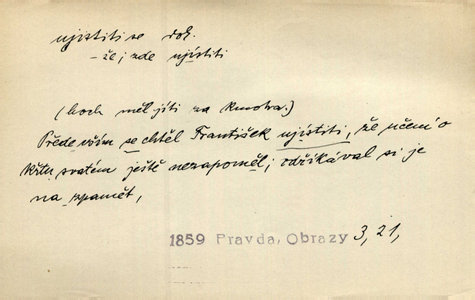 ujistiti se dok.
- že; zde ujístiti
(hoch měl jíti za kmotra.)
Přede vším se chtěl František ujístiti, že učení o
křtu svatém ještě nezapoměl; odříkával si je
na zpamět,
1859 Pravda, Obrazy 3, 21,